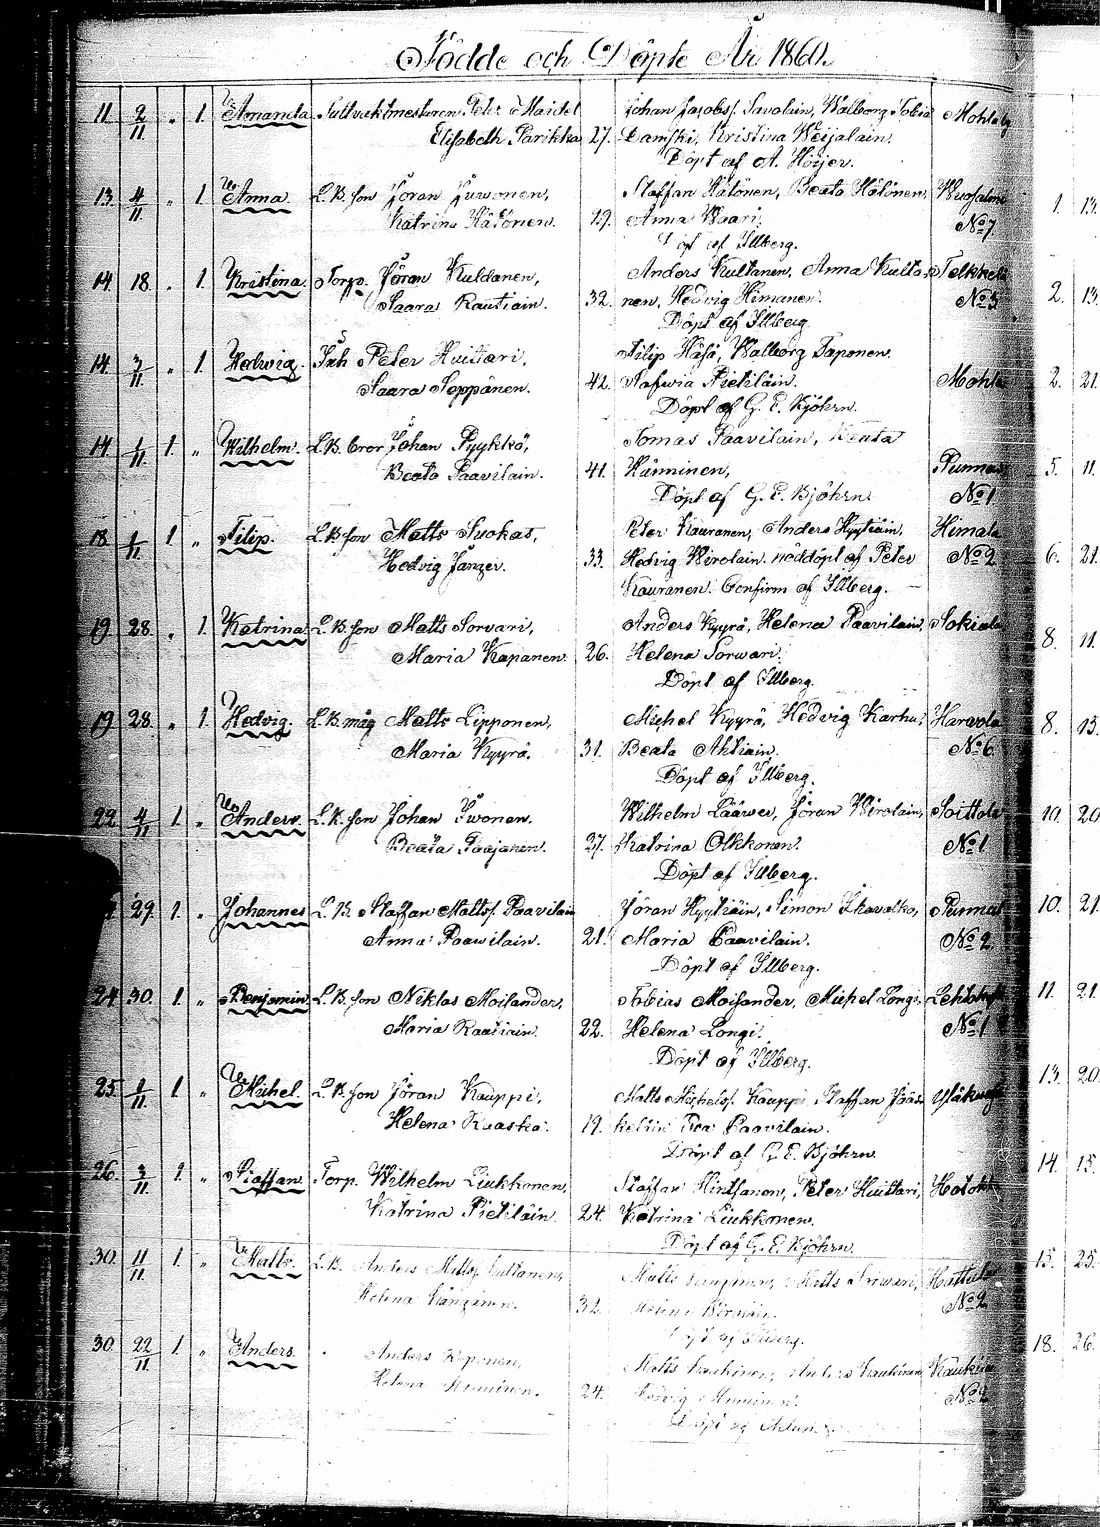 Födde och Döpte År 1860.
11 2/11 „ 1. Amanda Tullvaktmestaren Peter Maidel Johan Jacobss. Savolain, Walborg Tobia Mohla by
Elisabeth Parikka 27. Damski, Kristina Weijalain.
Döpt af A. Höijer.
13. 4/11 „ 1. Anna. L. B. son Jöran Juwonen, Staffan Hätönen, Beata Hätönen, Wuosalmi
Katrina Hätönen. 29. Anna Waari. No 7
Döpt af Illberg.
14 18. „ 1. Kristina. Torp. Jöran Kuldanen, Anders Kultanen, Anna Kulta Telkkälä
Saara Rautiain. 32. nen, Hedvig Himanen. No 3
Döpt af Illberg
14. 3/11. „ 1. Hedwig. Inh Peter Huittari, Filip Häfä, Walborg Taponen.
Saara Seppänen. 42. Safwia Pietiläin. Mohla
Döpt af G. E. Bjöhrn.
14. 1/11. 1. „ Wilhelm. L. B. bror Johan Pyykkö, Tomas Paavilain, Beata
Beata Paavilain. 41. Hänninen, Punnus
Döpt af G. E. Bjöhrn. No 1
18 1/11. 1 „ Filip. L. B. son Matts Suokas, Peter Kauranen, Anders Hyytiäin, Himala
Hedvig Jänzer. 33. Hedvig Wirolain. nöddöpt af Peter No 2
Kauranen. Confirm af Illberg.
19 28. „ 1. Katrina L. B. son Matts Sorvari, Anders Kyyrö, Helena Paavilain, Sokiala
Maria Kapanen 26. Helena Sorwari.
Döpt af Illberg.
19 28. „ 1. Hedvig. L. B. måg Matts Lipponen, Michel Kyyrö, Hedvig Karhu, Harvola
Maria Kyyrö. 31. Beata Ahtiain. No 6
Döpt af Illberg.
22 4/11 1. „ Anders. L. B. son Johan Iwonen. Wilhelm Lääwer, Jöran Wirolain, Soittola
Beata Paajanen. 37. Katrina Olkkonen. No 1
Döpt af Illberg.
29. 1. „ Johannes L. B. Staffan Mattss. Paavilain Jöran Hyytiäin, Simon Skavatka, Punnus
Anna Paawilain. 21. Maria Paavilain. No 2
Döpt af Illberg.
24 30. 1. „ Benjamin. L. B. son Niklas Moisander, Tobias Moisander, Michel Longi, Lehtokylä
Maria Raatiain. 22. Helena Longi. No 1
Döpt af Illberg.
25. 1/11. 1. „ Michel. L. B. son Jöran Kauppi, Matts Michelss. Kauppi, Staffan Jääs Yläkuusa
Helena Ruaska. 19. keläin Eva Paavilain.
Döpt af G. E. Bjöhrn.
26. 3/11. 1 „ Staffan. Torp. Wilhelm Liukkonen, Staffan Hintsanen, Peter Huittari, Hotokka
Katrina Pietiläin. 24. Katrina Liukkonen.
Döpt af G. E. Bjöhrn.
30. 11/11. 1. „ Matts. L. B. Anders Mattss. Kultanen, Matts Matts Hattula
Helena 32. Helena No 2
Döpt af Illberg.
30. 22/11. 1. „ Anders. Anders Reponen, Matts Kaukila
Helena 24. Hedvig No 2
Döpt af
1. 13.
2. 13.
2. 21.
5. 11.
6. 21.
8. 11.
8. 13.
10. 20
10. 21.
11. 21.
13. 20
14. 15.
15. 25.
18. 26.